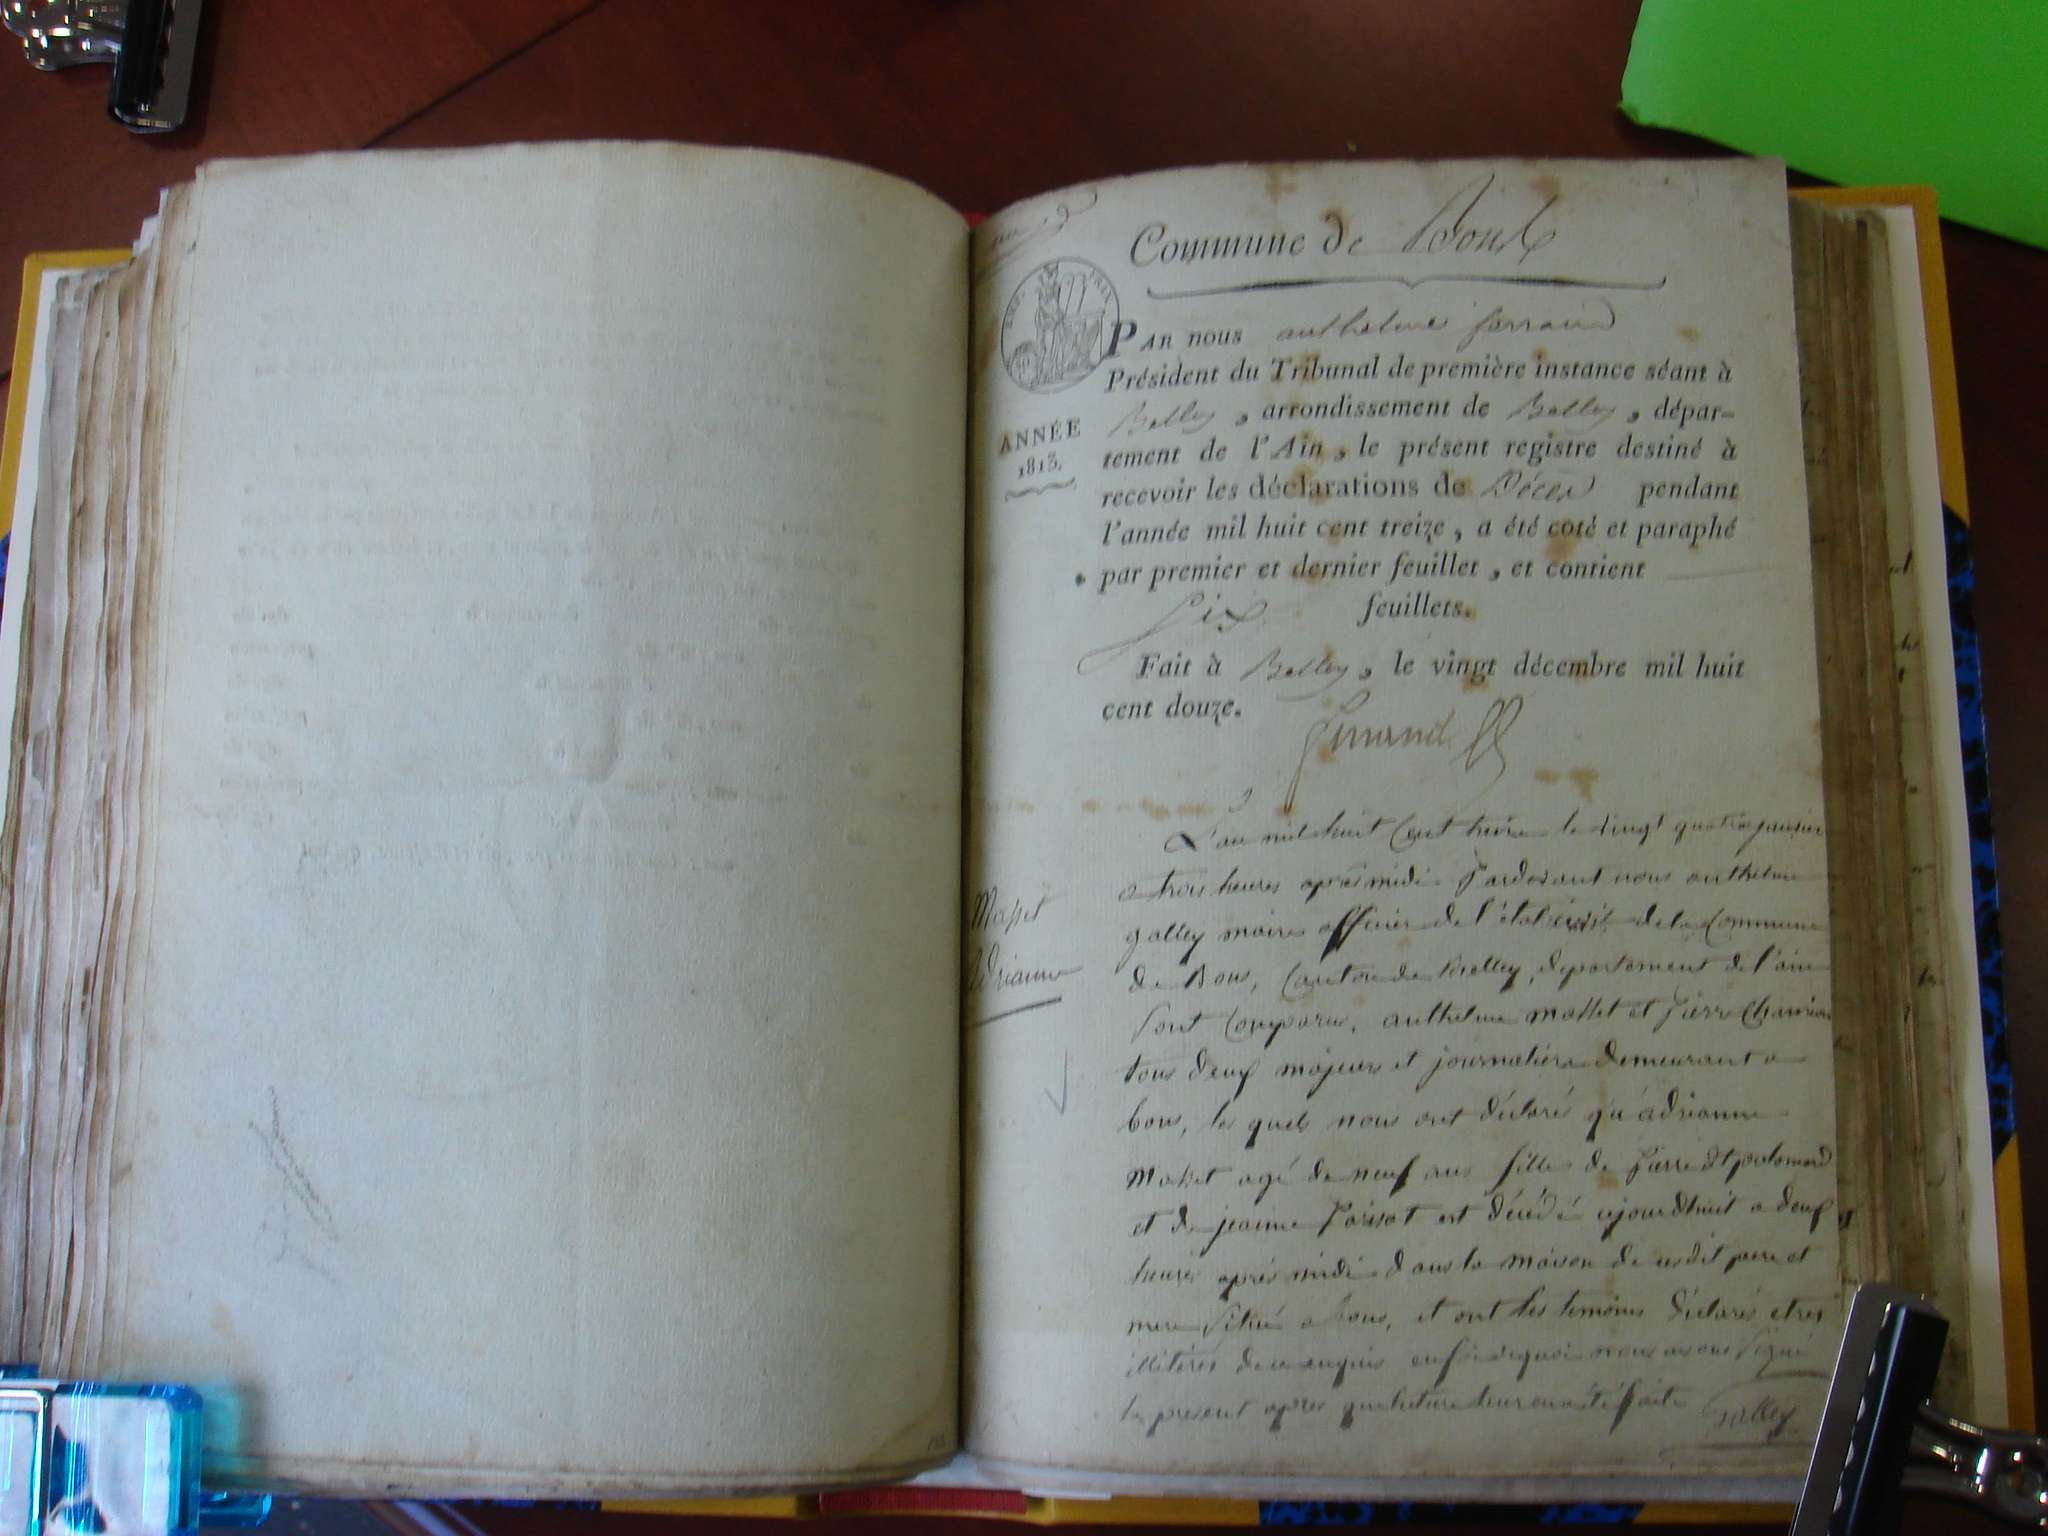 Commune de Bons
PAR nous anthelme ferrand
Président du Tribunal de première instance séant à
Belley, arrondissement de Belley, dépar-
tement de l'Ain, le présent registre destiné à
recevoir les déclarations de Décès pendant
l'année mil huit cent treize, a été coté et paraphé
par premier et dernier feuillet, et contient
six feuillets.
Fait à Belley, le vingt décembre mil huit
cent douze.
ferrand
ANNÉE
1813.
Masset
Adrianne
L'an mil huit Cent treize le vingt quatre janvier
a trois heures après midi Pardevant nous anthelme
galley maire officier de l'état civil de la Commune
de Bons, Canton de Belley, departement de l'ain
sont Comparus, anthelme masset et Pierre
tous deux majeurs et journaliers demeurant a
bons, les quels nous ont déclaré qu'adrianne
Masset agé de neuf ans fille de Pierre
et de jeanne Parisot est décédé cejourdhuit a deux
heures après midi dans la maison de sesdit pere et
mere situé a bons, et ont les temoins déclarés etres
illiterés de ce enquis enfoi de quoi nous avons signé
le present apres que lecture leur en a été faite Galley